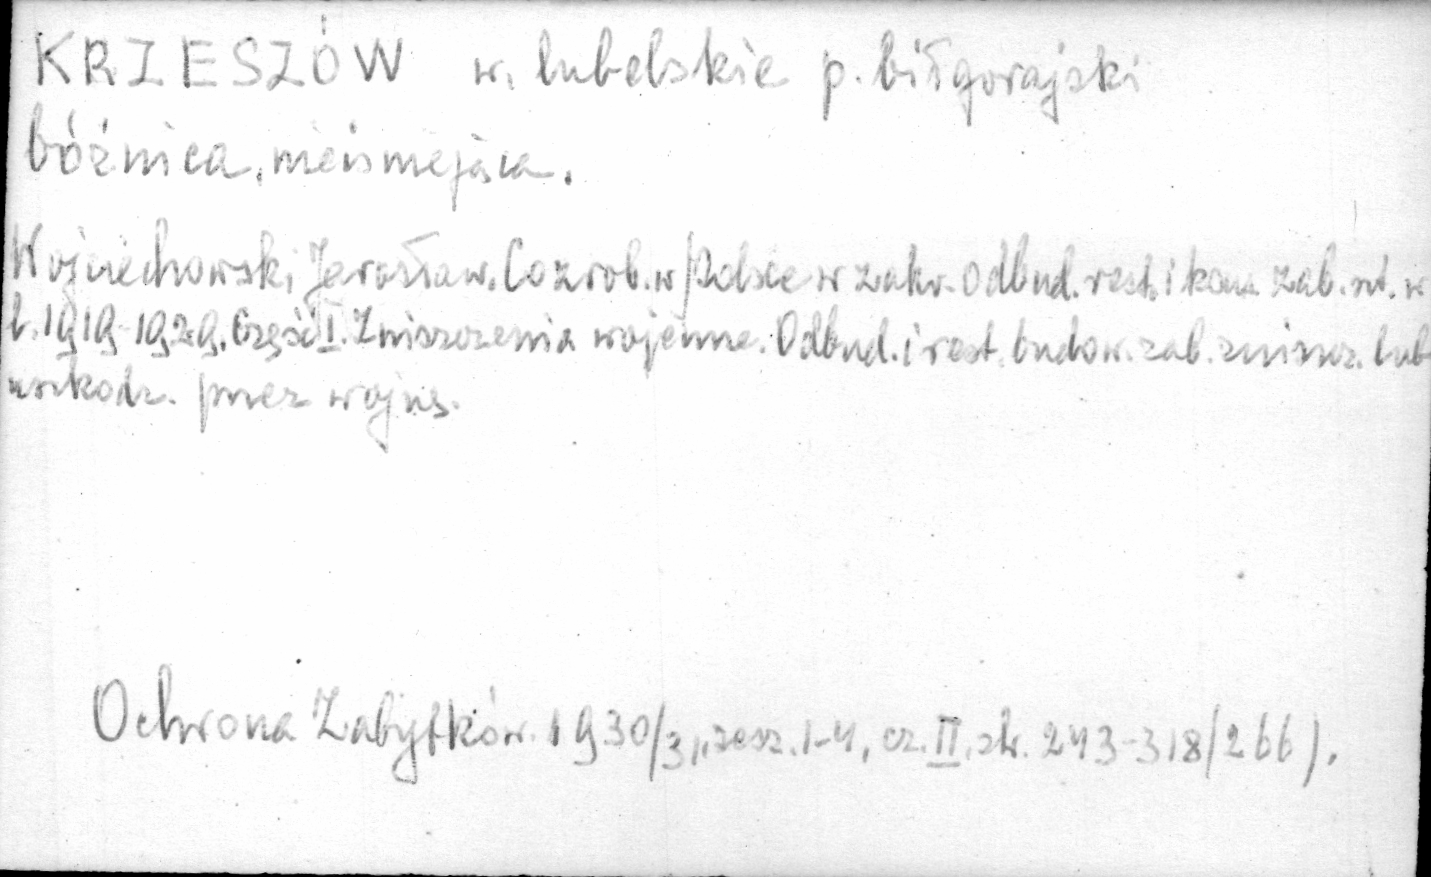 KRZESZÓW w. lubelskie p. biłgorajski
bóźnica, nieistniejąca.
Wojciechowski Jarosław. Co zrob. w Polsce w zakr. odbud. rest. i kons. zab. szt. w
l. 1919-1929. Część I. Zniszczenia wojenne. Odbud. i rest. budow. zab. zniszcz. lub
uszkodz. przez wojnę.
Ochrona Zabytków. 1930/31, zesz. 1-4, cz. II, str. 243-318/266).